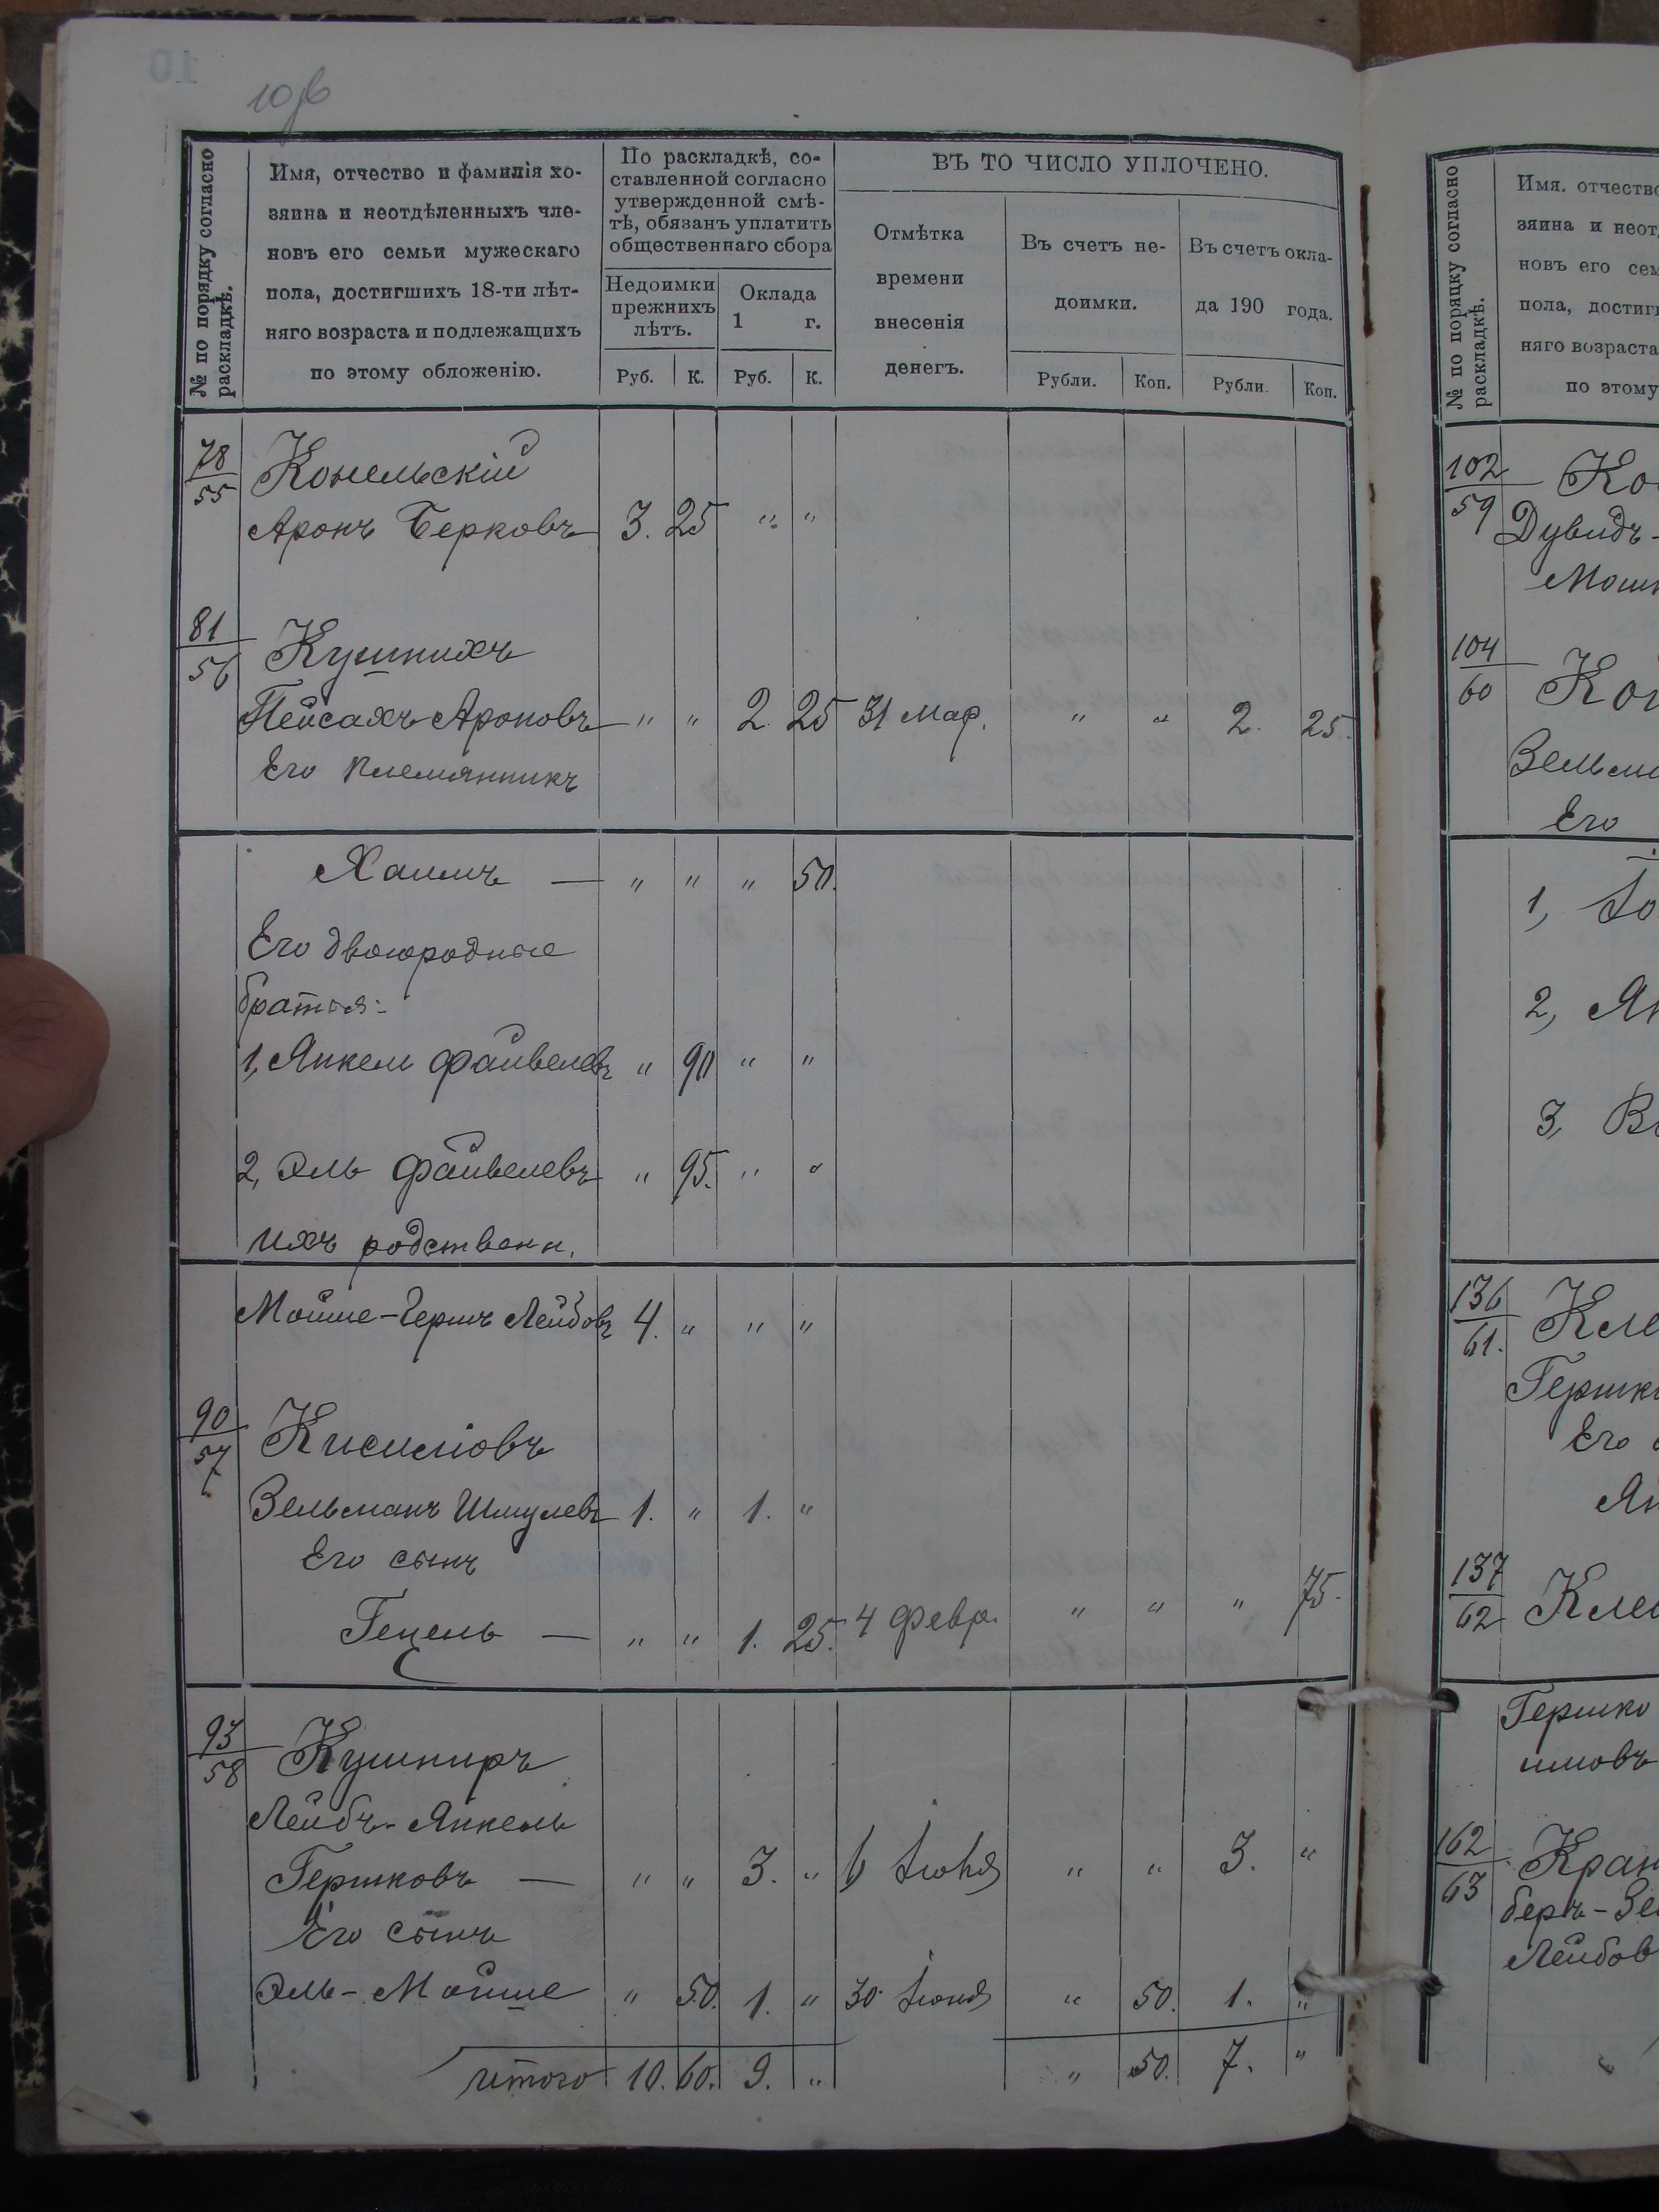 10
№ по порядку согласно раскладкѣ.
Имя, отчество и фамилія хо-
зяина и неотдѣленныхъ чле-
новъ его семьи мужескаго
пола, достигшихъ 18-ти лѣт-
няго возраста и подлежащихъ
по этому обложенію.
По раскладкѣ, со-
ставленной согласно
утвержденной смѣ-
тѣ, обязанъ уплатить
общественнаго сбора
Недоимки
прежнихъ
лѣтъ.
Оклада
1 г.
Руб. К. Руб. К.
ВЪ ТО ЧИСЛО УПЛОЧЕНО.
Отмѣтка
времени
внесенія
денегъ.
Въ счетъ не-
доимки.
Въ счетъ окла-
да 190 года.
Рубли. Коп. Рубли. Коп.
78/55 Конельскій
Аронъ Берковъ 3. 25 " "
81/56 Кушнихъ
Пейсахъ Ароновъ " " 2. 25 31 Мар. " " 2. 25.
Его племянникъ
Хаимъ — " " " 50.
Его двоюродные
братья:
1, Янкель Файвелевъ " 90 " "
2, Эль Файвелевъ " 95. " "
ихъ родственн.
Мойше-Гершъ Лейбовъ 4. " " "
90/57 Кисилiовъ
Зельманъ Шмулевъ 1. " 1. "
Его сынъ
— " " 1. 25. 4 Февр. " " " 75.
93/58 Кушниръ
Лейбъ-Янкель
Гершковъ — " " 3. " 6 Іюня " " 3. "
Его сынъ
Эль-Мойше " 50. 1. " 30 Іюня " 50. 1. "
Итого 10. 60. 9. " " 50. 7. "
№ по порядку согласно раскладкѣ.
Имя, отчество
зяина и неот
новъ его сем
пола, достиг
няго возраста
по этому
102/59 Ко
Дувидъ-
Мош
104/60 Ко
Зельм
Его
1, Іо
2, Ян
3, В
136/61. Кле
Гершк
Его
Ян
137/62 Кле
Гершко
имовъ
162/63 Кран
беръ-Зе
Лейбов